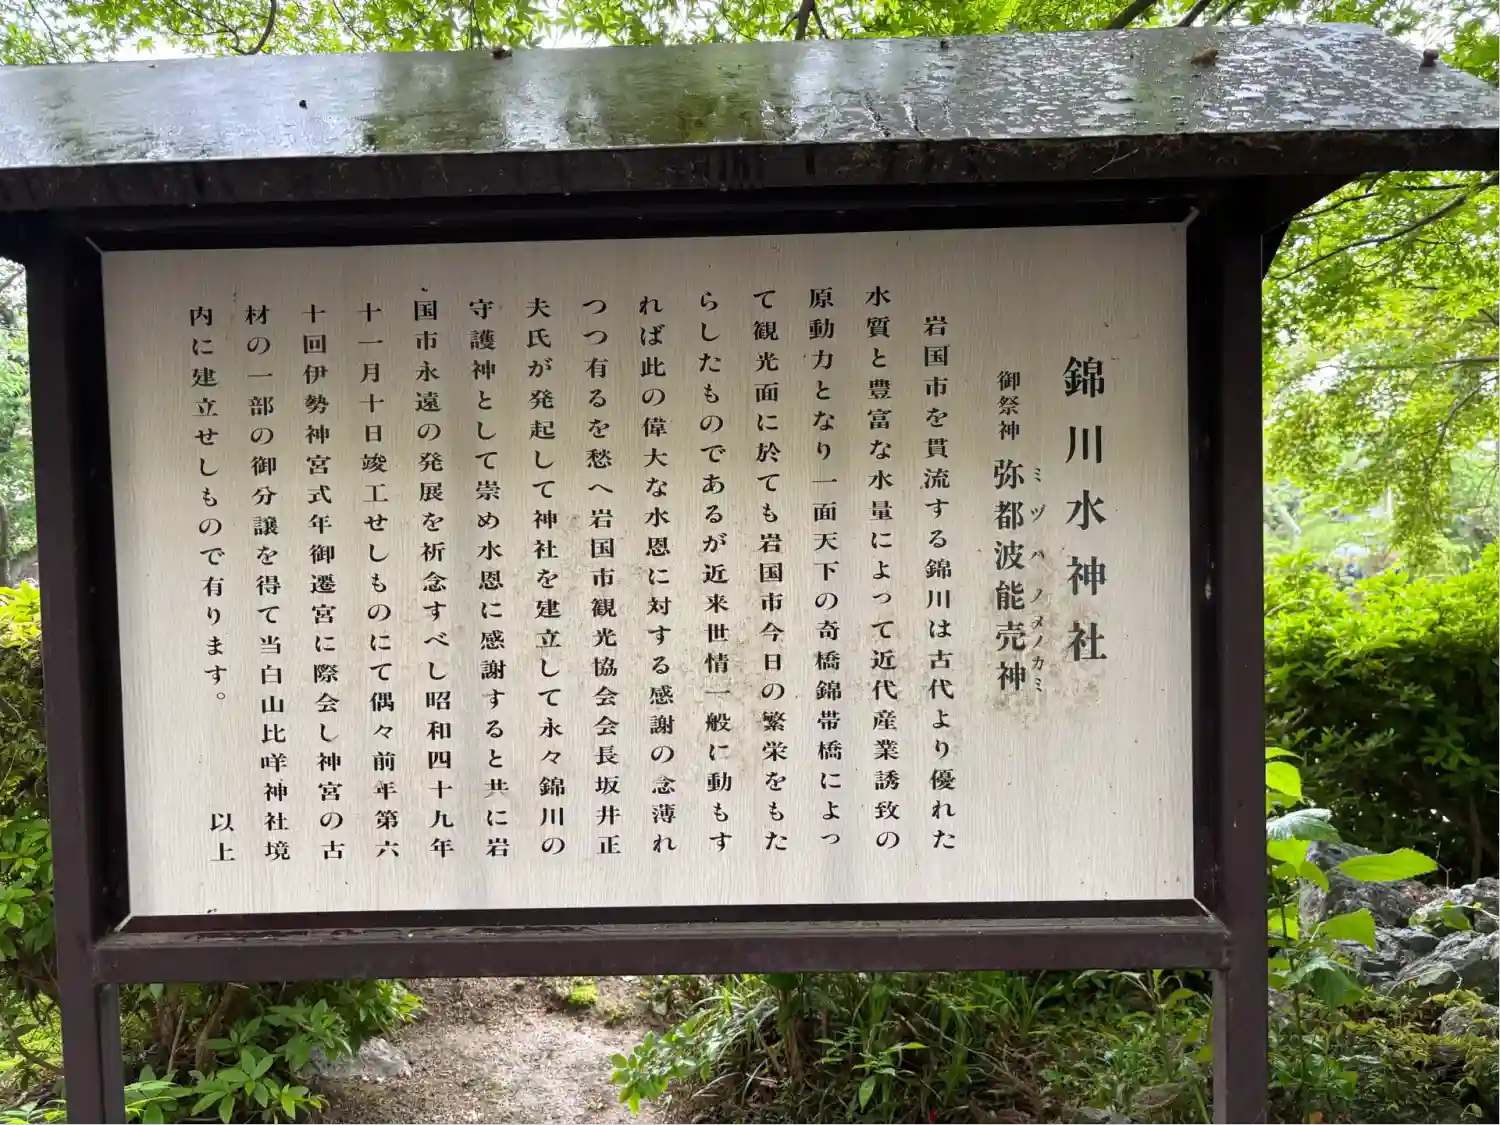 錦川水神社
御祭神 弥都波能売神
ミヅハノメノカミ
岩国市を貫流する錦川は古代より優れた
水質と豊富な水量によって近代産業誘致の
原動力となり一面天下の奇橋錦帯橋によっ
て観光面に於ても岩国市今日の繁栄をもた
らしたものであるが近来世情一般に動もす
れば此の偉大な水恩に対する感謝の念薄れ
つつ有るを愁へ岩国市観光協会会長坂井正
夫氏が発起して神社を建立して永々錦川の
守護神として崇め水恩に感謝すると共に岩
国市永遠の発展を祈念すべし昭和四十九年
十一月十日竣工せしものにて偶々前年第六
十回伊勢神宮式年御遷宮に際会し神宮の古
材の一部の御分譲を得て当白山比咩神社境
内に建立せしもので有ります。
以上